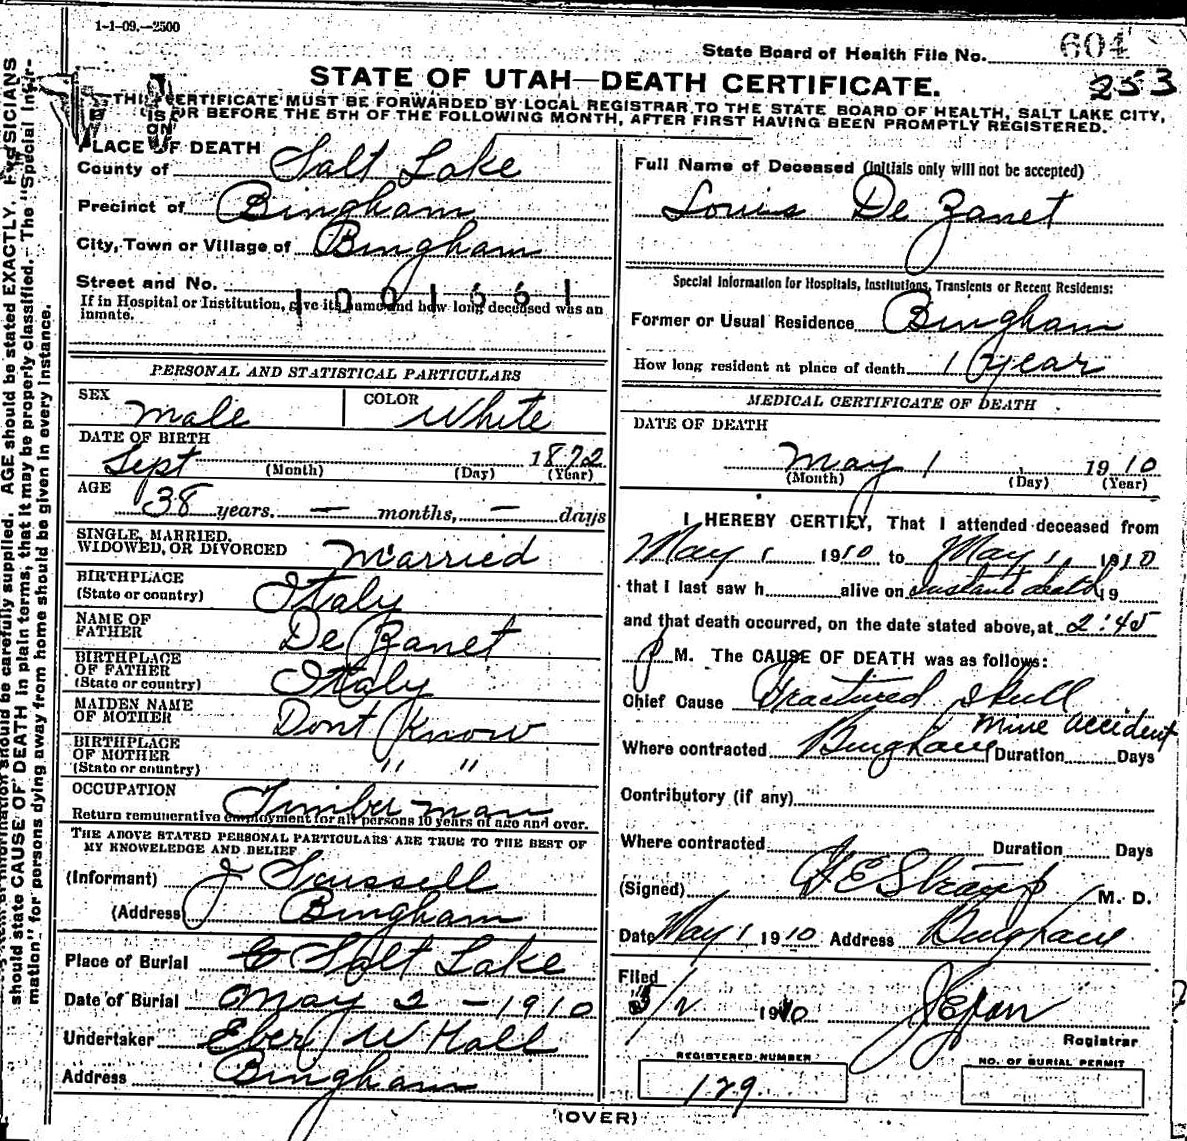 1-1-09.—2500
State Board of Health File No. 604
253
STATE OF UTAH—DEATH CERTIFICATE.
THIS CERTIFICATE MUST BE FORWARDED BY LOCAL REGISTRAR TO THE STATE BOARD OF HEALTH, SALT LAKE CITY,
ON OR BEFORE THE 5TH OF THE FOLLOWING MONTH, AFTER FIRST HAVING BEEN PROMPTLY REGISTERED.
PLACE OF DEATH
County of Salt Lake
Precinct of Bingham
City, Town or Village of Bingham
Street and No.
1001661
If in Hospital or Institution, give its name and how long deceased was an
inmate.
PERSONAL AND STATISTICAL PARTICULARS
SEX Male COLOR White
DATE OF BIRTH
Sept 1872
(Month) (Day) (Year)
AGE
38 years. — months, — days
SINGLE, MARRIED,
WIDOWED, OR DIVORCED Married
BIRTHPLACE
(State or country) Italy
NAME OF
FATHER De Zanet
BIRTHPLACE
OF FATHER
(State or country) Italy
MAIDEN NAME
OF MOTHER Dont Know
BIRTHPLACE
OF MOTHER
(State or country) " "
OCCUPATION Timber man
Return remunerative employment for all persons 10 years of age and over.
THE ABOVE STATED PERSONAL PARTICULARS ARE TRUE TO THE BEST OF
MY KNOWLEDGE AND BELIEF
(Informant) J
(Address) Bingham
Place of Burial Salt Lake
Date of Burial May 2 - 1910
Undertaker Eber W Hall
Address Bingham
Full Name of Deceased (initials only will not be accepted)
Louis De Zanet
Special Information for Hospitals, Institutions, Transients or Recent Residents:
Former or Usual Residence Bingham
How long resident at place of death 1 year
MEDICAL CERTIFICATE OF DEATH
DATE OF DEATH
May 1 1910
(Month) (Day) (Year)
I HEREBY CERTIFY, That I attended deceased from
May 1 1910 to May 1, 1910
that I last saw h alive on instant death 19
and that death occurred, on the date stated above, at 2:45
P M. The CAUSE OF DEATH was as follows:
Chief Cause Fractured Skull
Mine accident
Where contracted Bingham Duration Days
Contributory (if any)
Where contracted Duration Days
(Signed) M. D.
Date May 1 1910 Address Bingham
Filed
5/2 1910
Registrar
REGISTERED NUMBER
129.
NO. OF BURIAL PERMIT
(OVER)
should state CAUSE OF DEATH in plain terms, that it may be properly classified. The "Special Infor-
mation" for persons dying away from home should be given in every instance.